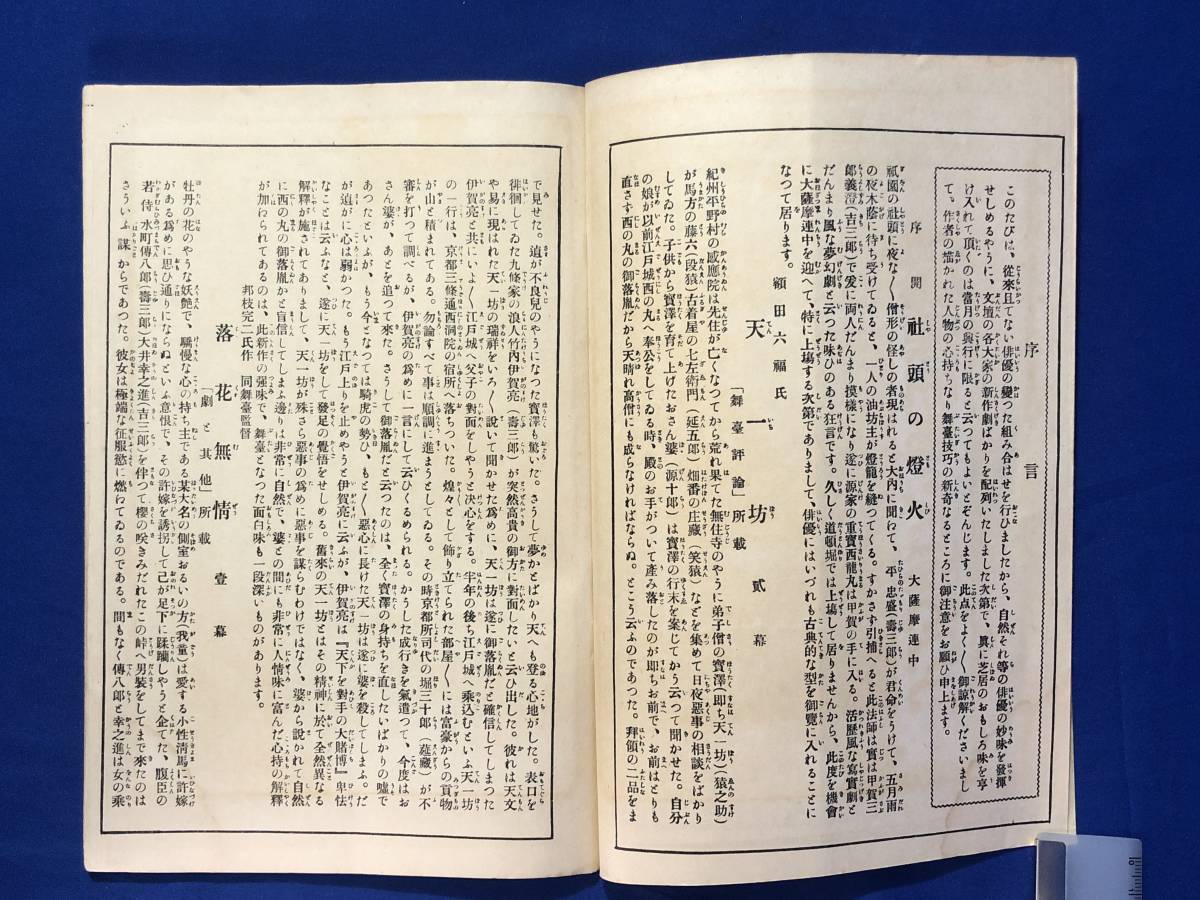 序言
このたびは、從來且てない俳優の變つた組み合はせを行ひましたから、自然それ等の俳優の妙味を發揮
せしめるやうに、文壇の各大家の新作劇ばかりを配列いたしました次第で、眞に芝居のおもしろ味を享
け入れて頂くのは當月の興行に限ると云つてもよいとぞんじます。此点をよく〳〵御諒解くださいまし
て。作者の描かれた人物の心持ちなり舞臺技巧の新奇なるところに御注意をお願ひ申上ます。
序開 社頭の燈火 大薩摩連中
祇園の社頭に夜な〳〵僧形の怪しの者現はれると大内に聞わて、平忠盛(壽三郎)が君命をうけて、五月雨
の夜木蔭に待ち受けてゐると、一人の油坊主が燈籠を縫つてくる。すかさず引捕へると此法師は實は甲賀三
郎義澄(吉三郎)で爰に兩人だんまり摸樣になり遂に源家の重寶西龍丸は甲賀の手に入る。活歷風な寫實劇と
だんまり風な夢幻劇と云つた味ひのある狂言です。久しく道頓堀では上場して居りませんから、此度を機會
に大薩摩連中を迎へて、特に上塲する次第でありまして、俳優にはいづれも古典的な型を御覽に入れることに
なつて居ります。
額田六福氏
「舞臺評論」所載
天一坊 貳幕
紀州平野村の感應院は先住が亡くなつてから荒れ果てた無住寺のやうに弟子僧の寶澤(即ち天一坊)(猿之助)
が馬方の藤六(段猿)古着屋の七左衛門(延五郎)畑番の庄藏(笑猿)などを集めて日夜惡事の相談をばかり
してゐた。子供から寶澤を育て上げたおさん婆(源十郎)は寶澤の行末を案じてかう云つて聞かせた。自分
の娘が以前江戸城西の丸へ奉公をしてゐる時、殿のお手がついて產み落したのが即ちお前で、お前はとりも
直さず西の丸の御落胤だから天晴れ高僧にも成らなければならぬ。とこう云ふのであつた。拜領の二品をま
で見せた。這が不良兒のやうになつた寶澤も驚いた。さうして夢かとばかり天へも登る心地がした。表口を
徘徊してゐた九條家の浪人竹内伊賀亮(壽三郎)が突然高貴の御方に對面したいと云ひ出した。彼れは天文
や易に現はれた天一坊の瑞祥をいろ〳〵說いて聞かせた爲めに、天一坊は遂に御落胤だと確信してしまつた
伊賀亮と共にいよ〳〵江戸城へ父子の對面をしやうと决心をする。半年の後ち江戸城へ乘込むといふ天一坊
の一行は、京都三條通西洞院の宿所へ落ちついた。煌々として飾り立てられた部屋〳〵には富豪からの貢物
が山と積まれてある。勿論すべて事は順調に進まうとしてゐる。その時京都所司代の堀三十郎(莚藏)が不
審を打つて調べるが、伊賀亮の爲めに一言にして云ひくるめられる。かうした成行きを氣遣つて、今度はお
さん婆が、あとを追つて來た。さうして御落胤だと云つたのは、全く寶澤の身持ちを直したいばかりの嘘で
あつたといふが、もう今となつては騎虎の勢ひ、もと〳〵惡心に長けた天一坊は遂に婆を殺してしまふ。だ
が這が心は弱かつた。もう江戸上りを止めやうと伊賀亮に云ふが、伊賀亮は『天下を對手の大賭博』卑怯
なことは云ふなと、遂に天一坊をして發足の覺悟をせしめる。舊來の天一坊とはその精神に於て全然異なる
解釋が施されてありまして、天一坊が殊さら惡事の爲めに惡事を謀らむわけではなく、婆から說かれて自然
に西の丸の御落胤かと盲信してしまふ邊りは非常に自然で、婆との間にも非常に人情味に富んだ心持の解釋
が加わられてあるのは、此新作の强味で、舞臺となつた面白味も一段深いものがあります。
邦枝完二氏作 同舞臺監督
「劇と其他」所載
落花無情 壹幕
牡丹の花のやうな妖艶で、驕慢な心の持ち主である某大名の側室おるいの方(我童)は愛する小性淸馬に許嫁
がある爲めに思ひ通りにならぬといふ意恨で、その許嫁を誘拐して己が足下に蹂躪しやうと企てた、腹臣の
若侍水町傳八郎(壽三郎)大井幸之進(吉三郎)を伴つて櫻の咲きみだれたこの峠へ男裝をしてまで來たのは
さういふ謀からであつた。彼女は極端な征服慾に燃わてゐるのである。間もなく傳八郎と幸之進は女の乘